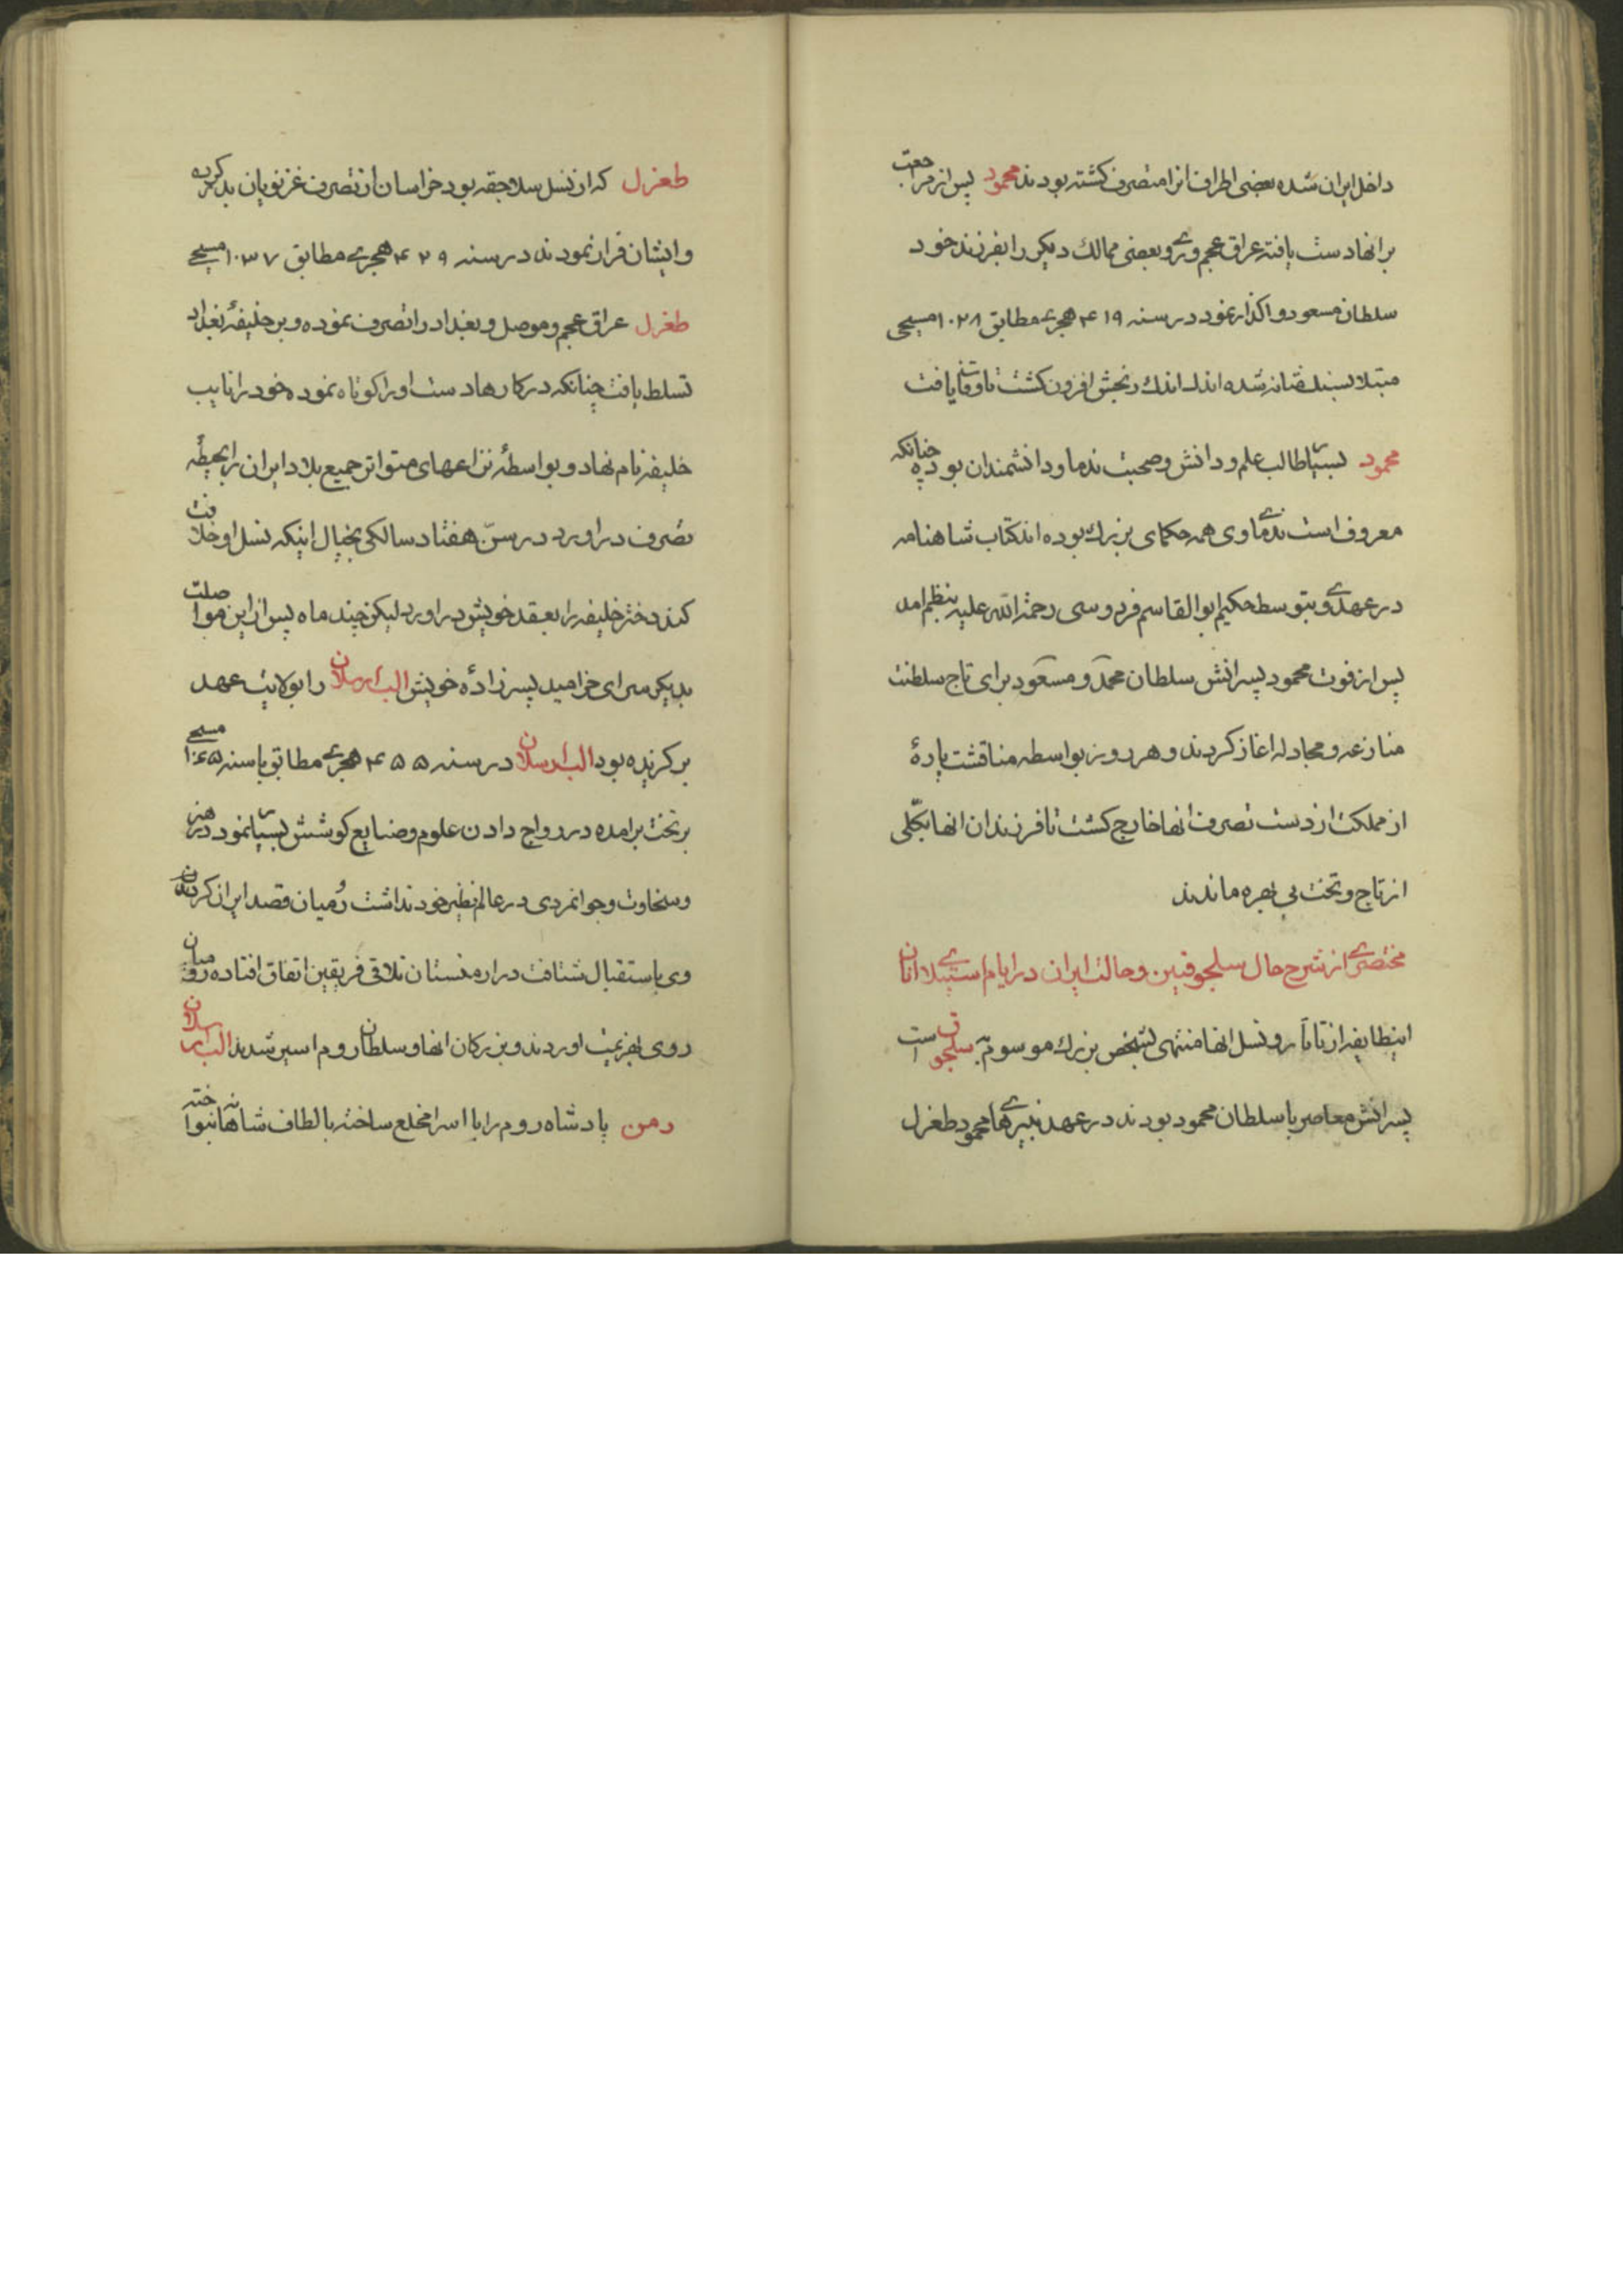 داخل ایران شده بعضی اطراف انرا متصرف کشته بودند محمود پس از مراجعت
بر انها دست یافته عراق عجم و ری و بعضی ممالک دیکر را بفرزند خود
سلطان مسعود واکذار نمود در سنه ۴۱۹ هجری مطابق ۱۰۲۸ مسیحی
مبتلا بسنك مثانه شده اندك اندك رنجش افزون کشت تا وفات یافت
محمود بسیار طالب علم و دانش و صحبت ندما و دانشمندان بوده چنانکه
معروف است ندمای وی همه حکمای بزرك بوده اند کتاب شاهنامه
در عهد وی و بتوسط حکیم ابوالقاسم فردوسی رحمة الله علیه بنظم امد
پس از فوت محمود پسرانش سلطان محمد و مسعود برای تاج سلطنت
منازعه و مجادله اغاز کردند و هر روز بواسطه مناقشت پارهٔ
از مملکت از دست تصرف انها خارج کشت تا فرزندان انها بکلّی
از تاج و تخت بی بهره ماندند
مختصری از شرح حال سلجوقیین و حالت ایران در ایام استیلای انان
اینطایفه از تاتار و نسل انها منتهی بشخص بزرك موسوم به سلجوق است
پسرانش معاصر با سلطان محمود بودند در عهد نبیرهای محمود طغرل
طغرل که از نسل سلاجقه بود خراسان از تصرف غزنویان بدر کرده
و ایشان فرار نمودند در سنه ۴۲۹ هجری مطابق ۱۰۳۷ مسیحی
طغرل عراق عجم و موصل و بغداد را تصرف نموده و بر خلیفهٔ بغداد
تسلط یافت چنانکه در کارها دست او را کوتاه نموده خود را نایب
خلیفه نام نهاد و بواسطهٔ نزاعهای متواتر جمیع بلاد ایران را بحیطهٔ
تصرف در اورد در سنّ هفتاد سالکی بخیال اینکه نسل او خلافت
کند دختر خلیفه را بعقد خویش در اورد لیکن چند ماه پس از این مواصلت
بدیکر سرای خرامید پسر زادهٔ خویش الب ارسلان را بولایت عهد
برکزیده بود الب ارسلان در سنه ۴۵۵ هجری مطابق با سنه ۱۰۶۵ مسیحی
بر تخت برامده در رواج دادن علوم و صنایع کوشش بسیار نمود در هنر
و سخاوت و جوانمردی در عالم نظیر خود نداشت رومیان قصد ایران کردند
وی باستقبال شتافت در ارمنستان تلاقی فریقین اتفاق افتاده رومیان
روی بهزیمت اوردند و بزرکان انها و سلطان روم اسیر شدند الب ارسلان
رمن پادشاه روم را با اسرا مخلع ساخته بالطاف شاهانه نواخته